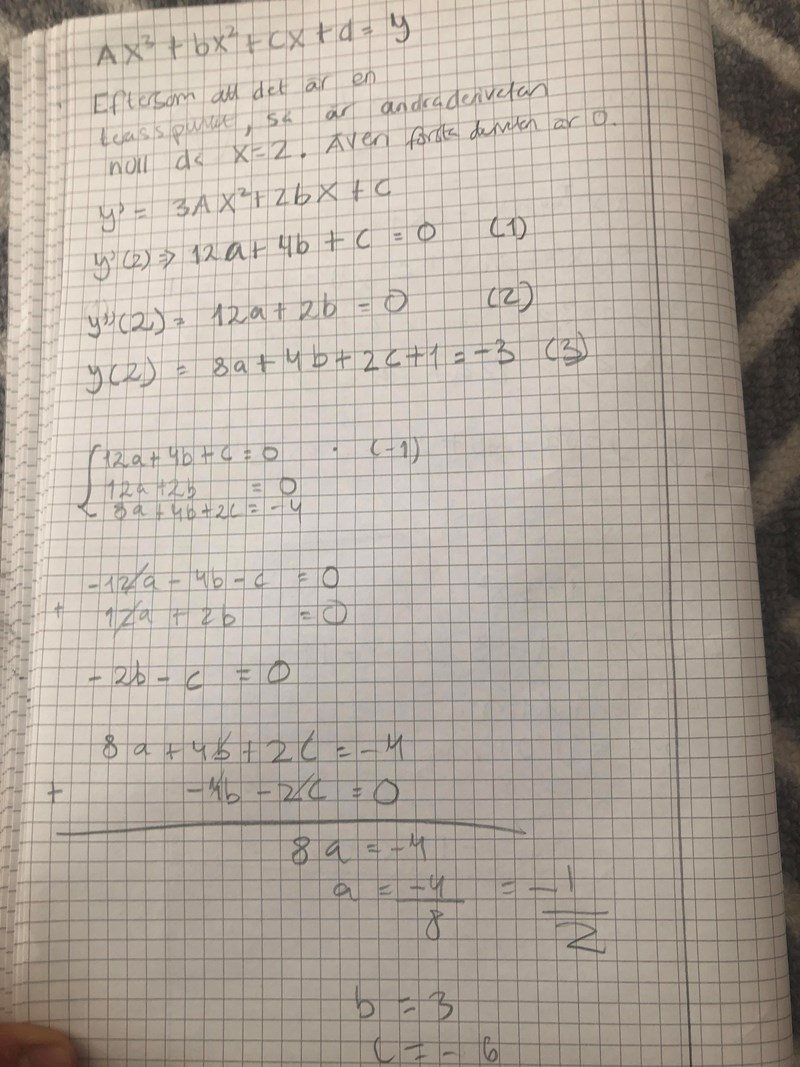 Ax³ + bx² + cx + d = y
Eftersom att det är en
terasspunkt, så är andraderivatan
noll då x=2. Även första derivatan är 0.
y' = 3Ax² + 2bx + c
y'(2) ⇒ 12a + 4b + c = 0 (1)
y''(2) = 12a + 2b = 0 (2)
y(2) = 8a + 4b + 2c + 1 = -3 (3)
{12a + 4b + c = 0 · (-1)
12a + 2b = 0
8a + 4b + 2c = -4
-12a - 4b - c = 0
+ 12a + 2b = 0
-2b - c = 0
8a + 4b + 2c = -4
+ -4b - 2c = 0
8a = -4
a = -4/8 = -1/2
b = 3
c = -6